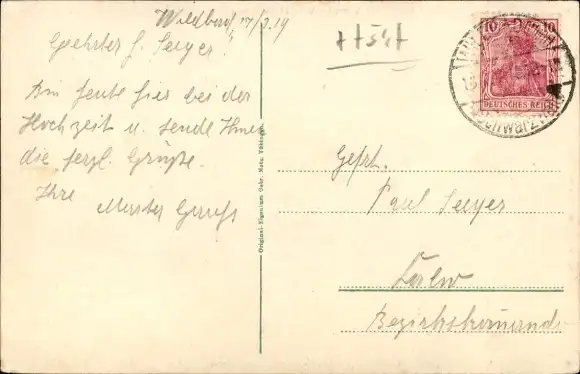 Wildbad, 17/3.19
Geehrter H. Seeyer!
Bin heute hier bei der
Hochzeit u. sende Ihnen
die herzl. Grüße.
Ihre
Original-Eigentum Gebr. Metz, Tübingen
10
DEUTSCHES REICH
Schwarz
Gefrt.
Paul Seeyer
Calw
Bezirkskommando